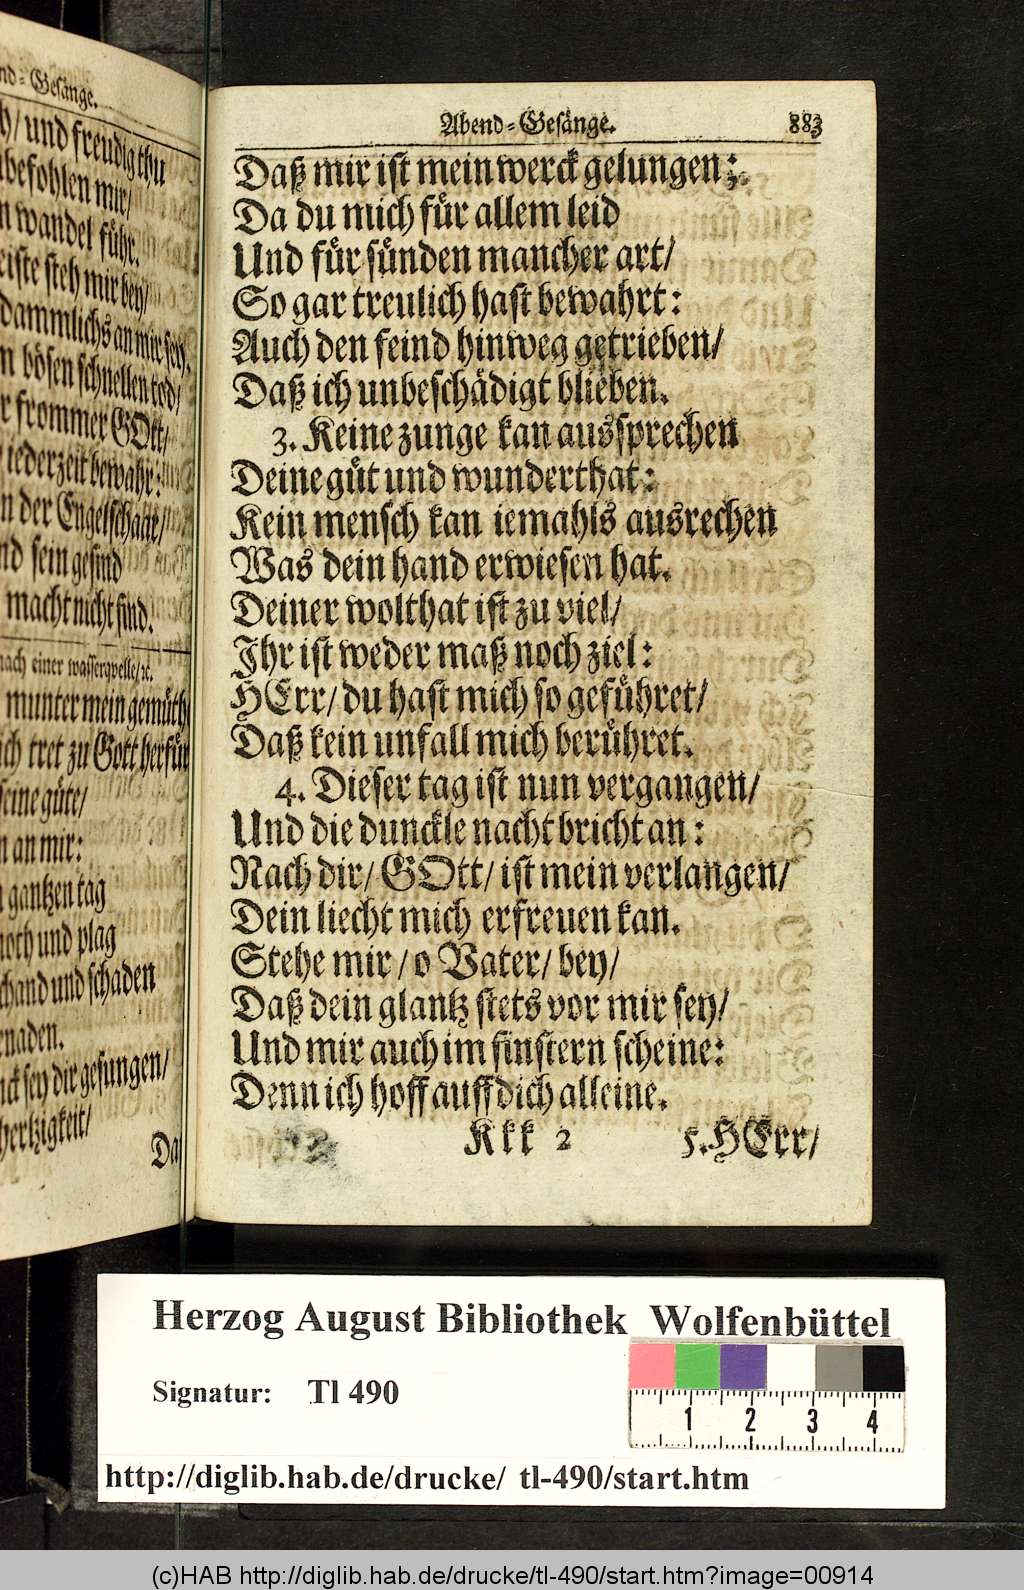 nd-Gesänge.
h/ und freudig thu
befohlen mir/
n wandel führ.
eiste steh mir bey/
dammlichs an mir sey.
n bösen schnellen tod/
r frommer GOtt/
iederzeit bewahr:
n der Engelschaar/
nd sein gesind
macht nicht find.
nach einer wasserqvelle/ꝛc.
munter mein gemüth
ch tret zu Gott herfür
seine güte/
n an mir:
gantzen tag
noth und plag
schand und schaden
rnaden.
nck sey dir gesungen/
hertzigkeit/
Da
Abend-Gesänge. 883
Daß mir ist mein werck gelungen;
Da du mich für allem leid
Und für sünden mancher art/
So gar treulich hast bewahrt:
Auch den feind hinweg getrieben/
Daß ich unbeschädigt blieben.
3. Keine zunge kan aussprechen
Deine güt und wunderthat:
Kein mensch kan iemahls ausrechen
Was dein hand erwiesen hat.
Deiner wolthat ist zu viel/
Ihr ist weder maß noch ziel:
HErr/ du hast mich so geführet/
Daß kein unfall mich berühret.
4. Dieser tag ist nun vergangen/
Und die dunckle nacht bricht an:
Nach dir/ GOtt/ ist mein verlangen/
Dein liecht mich erfreuen kan.
Stehe mir/ o Vater/ bey/
Daß dein glantz stets vor mir sey/
Und mir auch im finstern scheine:
Denn ich hoff auff dich alleine.
Kkk 2 5. HErr/
Herzog August Bibliothek Wolfenbüttel
Signatur: Tl 490
1 2 3 4
http://diglib.hab.de/drucke/ tl-490/start.htm
(c)HAB http://diglib.hab.de/drucke/tl-490/start.htm?image=00914